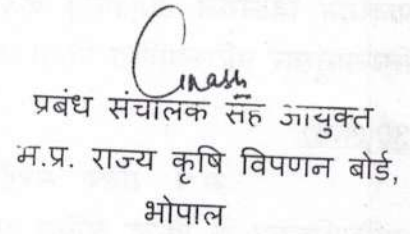 प्रबंध संचालक सह आयुक्त
म.प्र. राज्य कृषि विपणन बोर्ड,
भोपाल